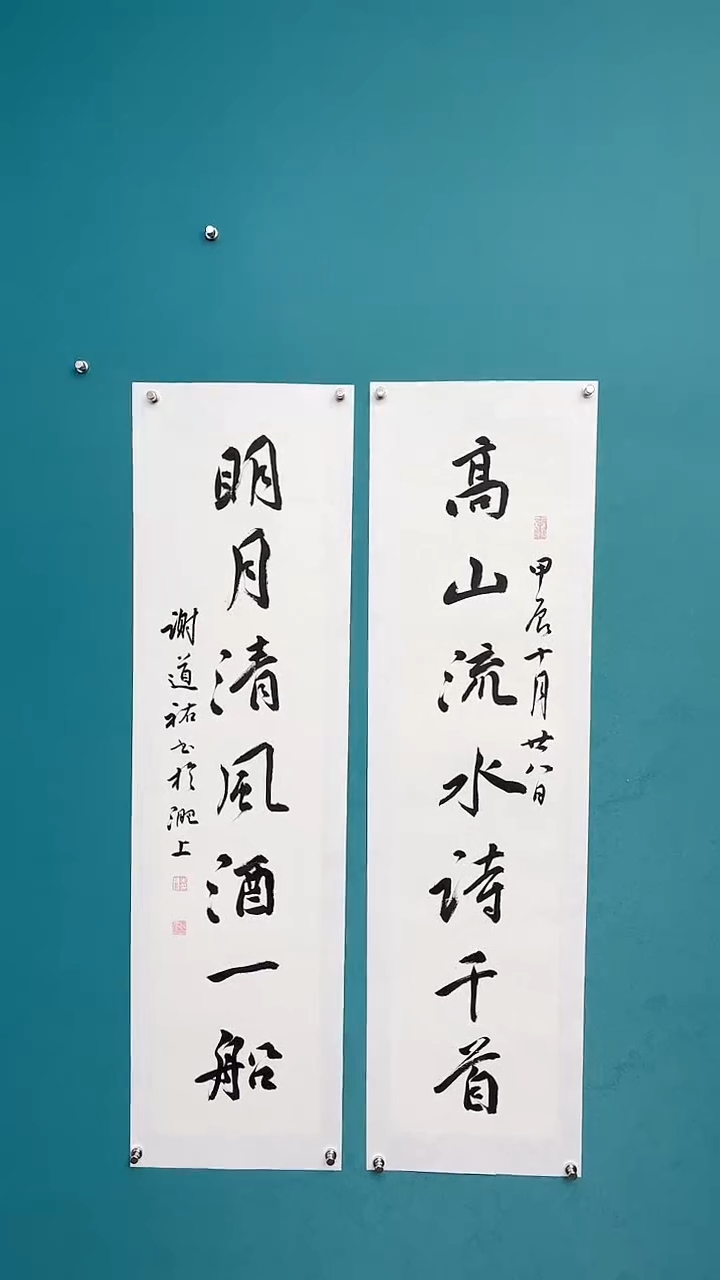 高山流水诗千首
甲辰十月廿八日
明月清风酒一船
谢道祐书於淝上